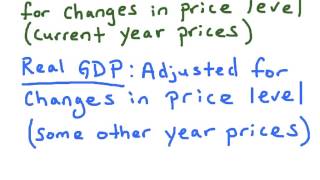 for changes in price level
(current year prices)
Real GDP: Adjusted for
changes in price level
(some other year prices)